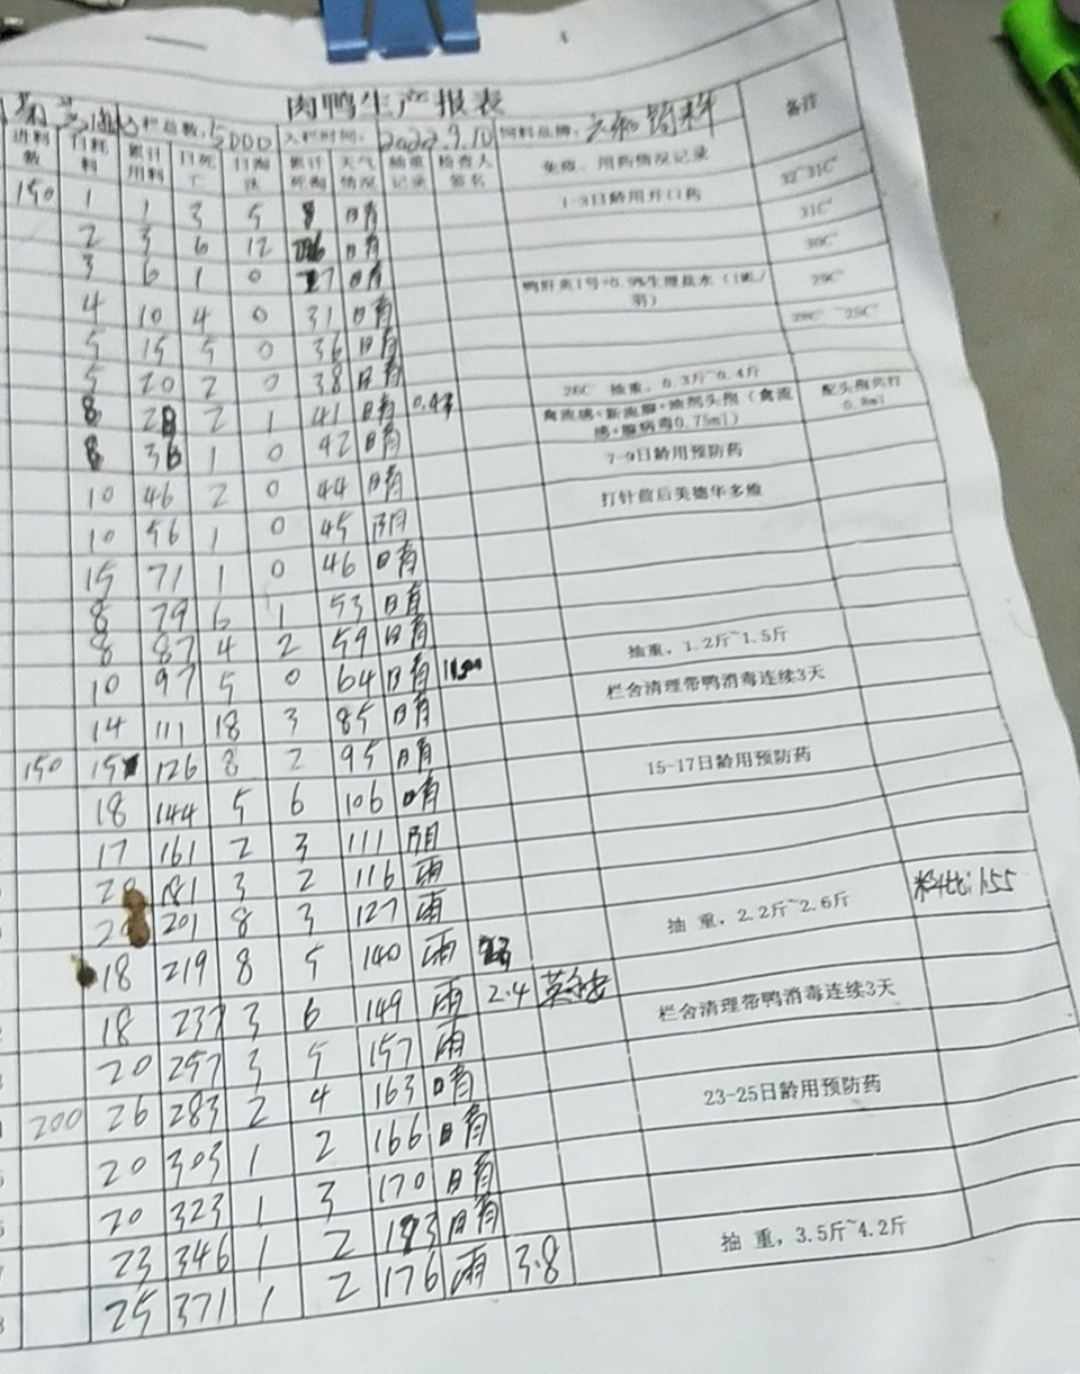 肉鸭生产报表
入栏总数：5000 入栏时间：2022.9.10 饲料品牌： 饲料 备注
进料数 日耗料 累计用料 日死亡 日淘汰 累计死淘 天气情况 抽重记录 检查人签名 免疫、用药情况记录
150 1 1 3 5 8 晴 1-3日龄用开口药 32~31C°
2 3 6 12 26 晴 31C°
3 6 1 0 27 晴 30C°
4 10 4 0 31 晴 鸭肝炎1号+0.9%生理盐水（1ml/羽） 29C°
5 15 5 0 36 晴 28C°~25C°
5 20 2 0 38 晴 26C° 抽重，0.3斤~0.4斤
8 28 2 1 41 晴 禽流感+新流腺+油剂头孢（禽流感+腺病毒0.75ml） 配头孢共打0.8ml
8 36 1 0 42 晴 7-9日龄用预防药
10 46 2 0 44 晴 打针前后美德华多维
10 56 1 0 45 阴
15 71 1 0 46 晴
8 79 6 1 53 晴
8 87 4 2 59 晴 抽重，1.2斤~1.5斤
10 97 5 0 64 晴 栏舍清理带鸭消毒连续3天
14 111 18 3 85 晴
150 15 126 8 2 95 晴 15-17日龄用预防药
18 144 5 6 106 晴
17 161 2 3 111 阴
20 181 3 2 116 雨
20 201 8 3 127 雨 抽 重，2.2斤~2.6斤 料比:1.55
18 219 8 5 140 雨
18 237 3 6 149 雨 2.4 栏舍清理带鸭消毒连续3天
20 257 3 5 157 雨
200 26 283 2 4 163 晴 23-25日龄用预防药
20 303 1 2 166 晴
20 323 1 3 170 晴
23 346 1 2 173 晴
25 371 1 2 176 雨 3.8 抽 重，3.5斤~4.2斤